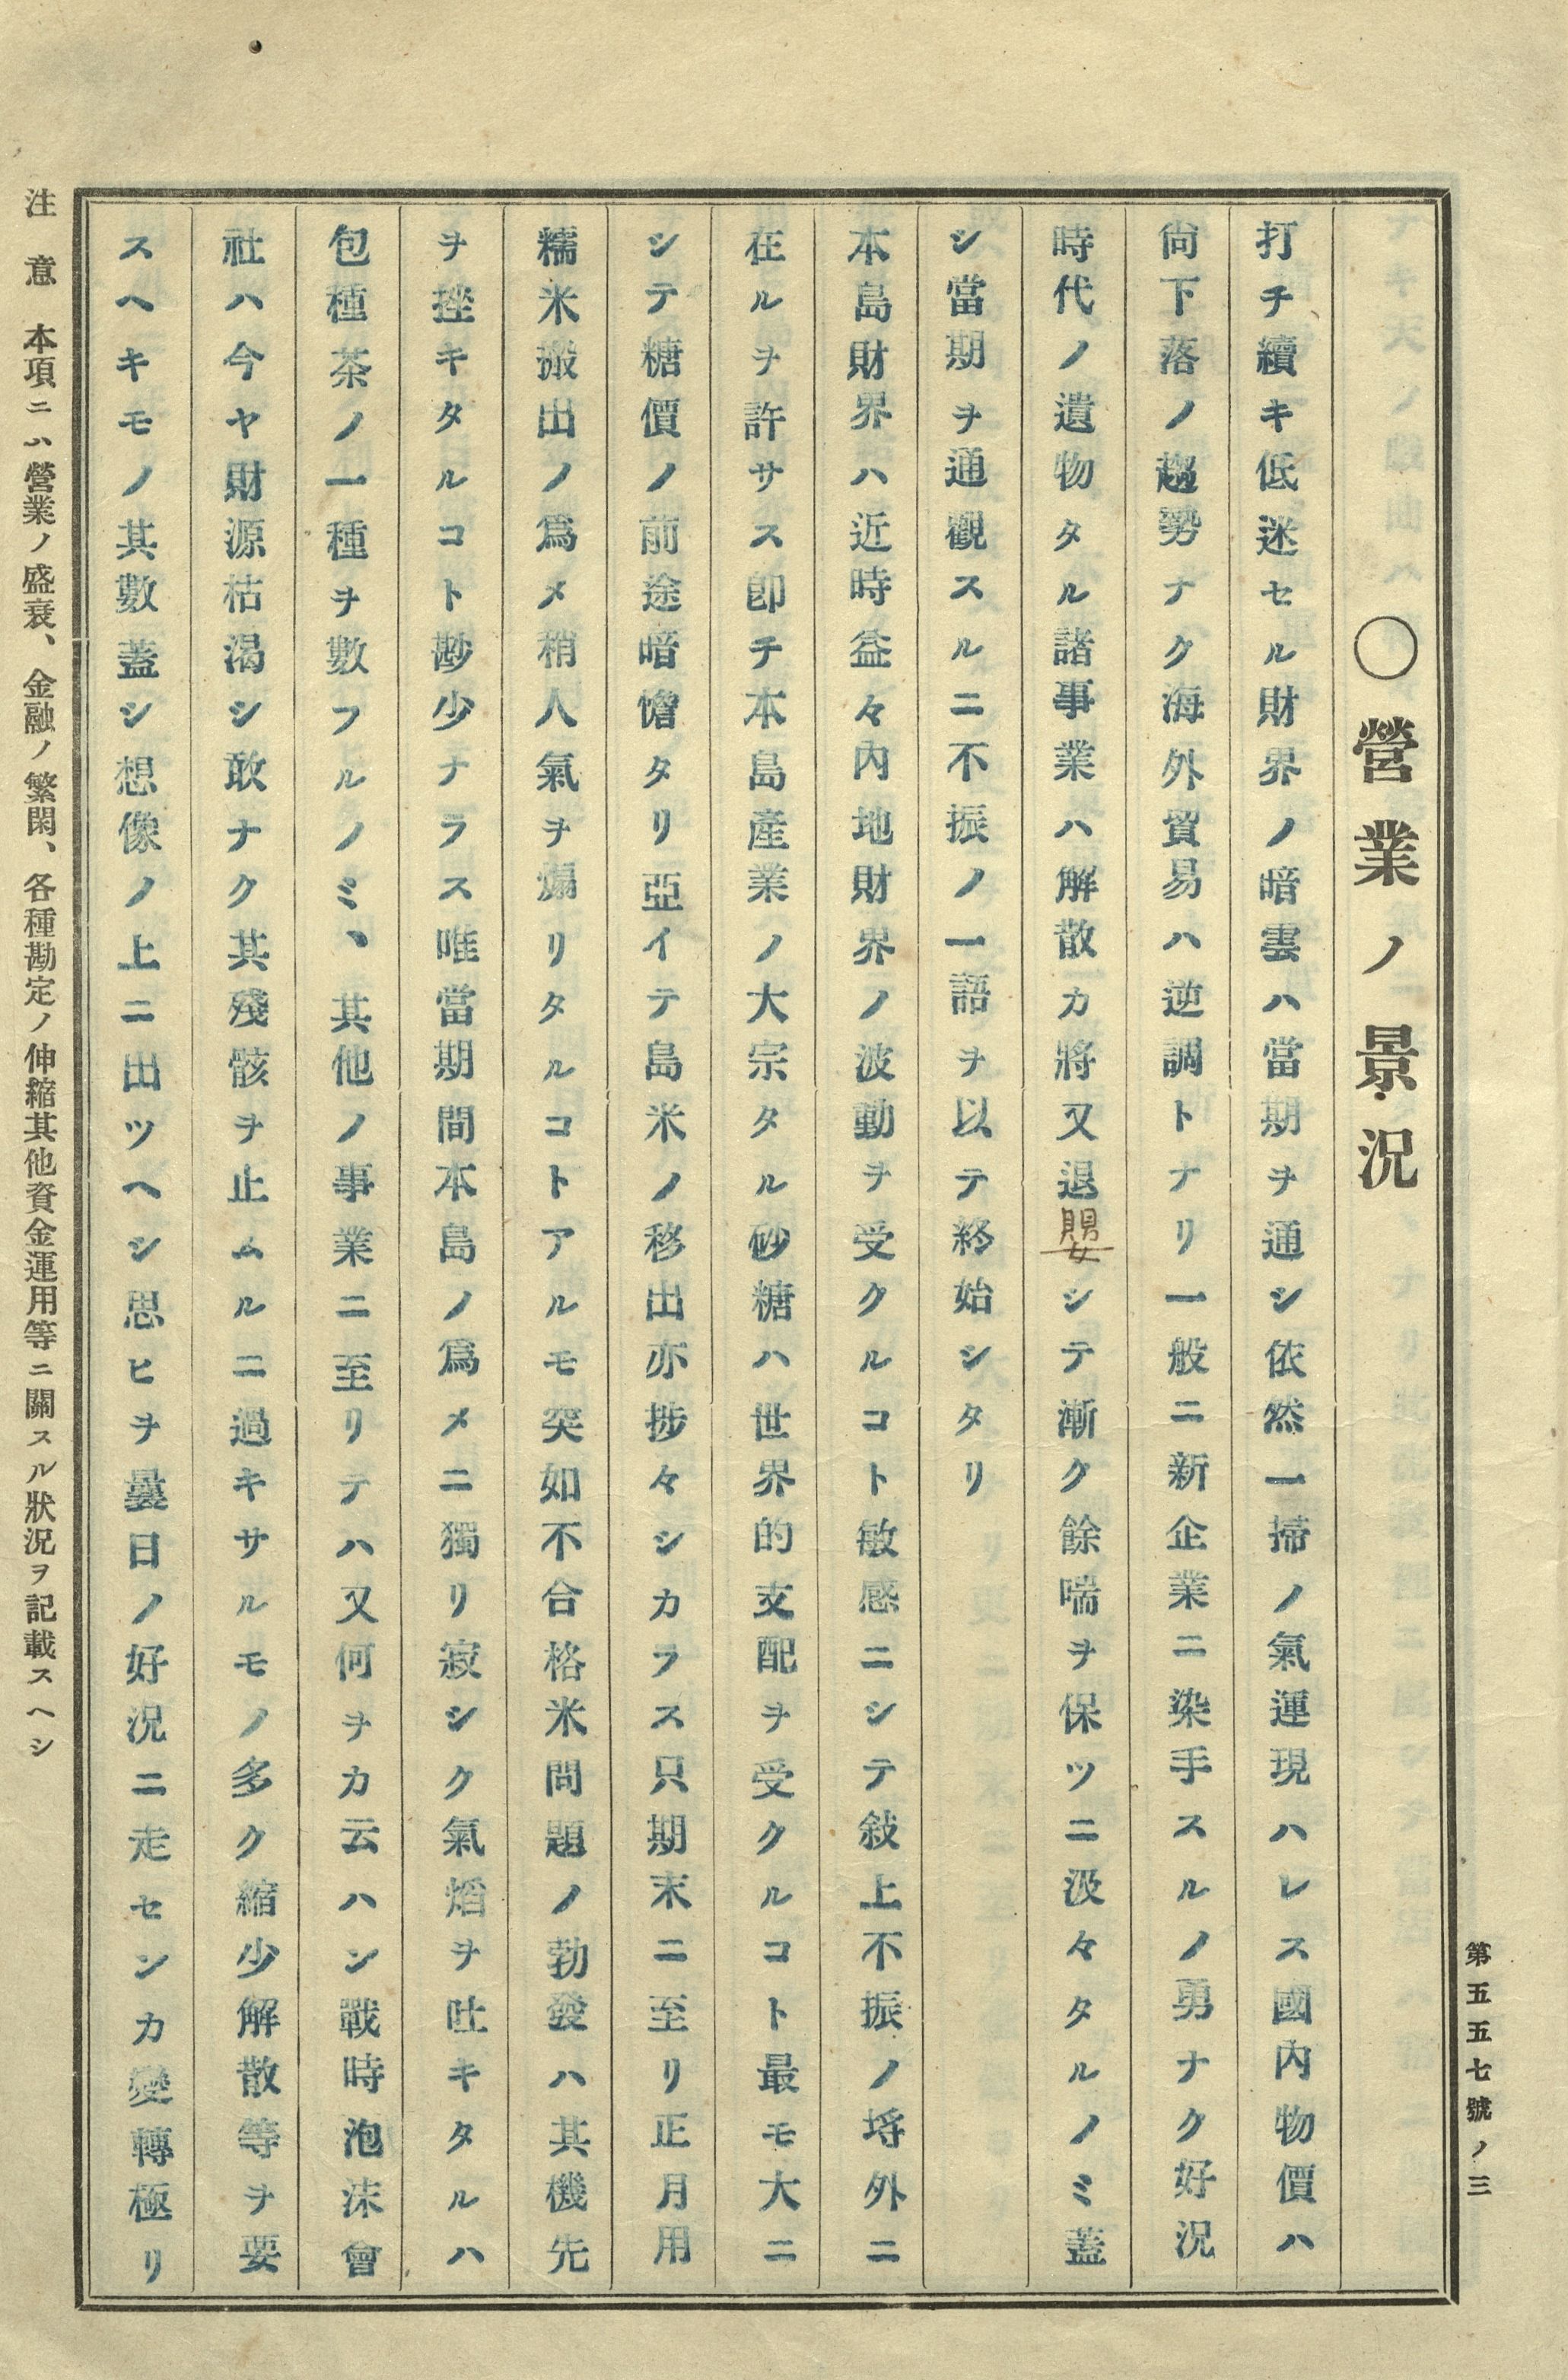 第五五七號ノ三
◯營業ノ景況
打チ續キ低迷セル財界ノ暗雲ハ當期ヲ通シ依然一掃ノ氣運現ハレス國内物價ハ
尙下落ノ趨勢ナク海外貿易ハ逆調トナリ一般ニ新企業ニ染手スルノ勇ナク好況
時代ノ遺物タル諸事業ハ解散カ將又退嬰シテ漸ク餘喘ヲ保ツニ汲々タルノミ蓋
シ當期ヲ通觀スルニ不振ノ一語ヲ以テ終始シタリ
本島財界ハ近時益々内地財界ノ波動ヲ受クルコト敏感ニシテ敍上不振ノ埓外ニ
在ルヲ許サス卽チ本島產業ノ大宗タル砂糖ハ世界的支配ヲ受クルコト最モ大ニ
シテ糖價ノ前途暗憺タリ亞イテ島米ノ移出亦捗々シカラス只期末ニ至リ正月用
糯米搬出ノ爲メ稍人氣ヲ煽リタルコトアルモ突如不合格米問題ノ勃發ハ其機先
ヲ挫キタルコト尠少ナラス唯當期間本島ノ爲メニ獨リ寂シク氣熖ヲ吐キタルハ
包種茶ノ一種ヲ數フルノミ、其他ノ事業ニ至リテハ又何ヲカ云ハン戰時泡沫會
社ハ今ヤ財源枯渴シ敢ナク其殘骸ヲ止ムルニ過キサルモノ多ク縮少解散等ヲ要
スヘキモノ其數蓋シ想像ノ上ニ出ツヘシ思ヒヲ曩日ノ好況ニ走センカ變轉極リ
注意 本項ニハ營業ノ盛衰、金融ノ繁閑、各種勘定ノ伸縮其他資金運用等ニ關スル狀況ヲ記載スヘシ